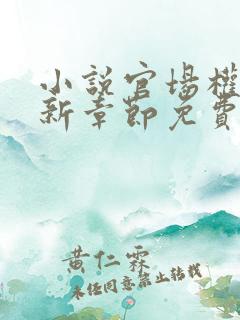 小說官場權
新章節免費
黃仁霖
未经同意禁止转载